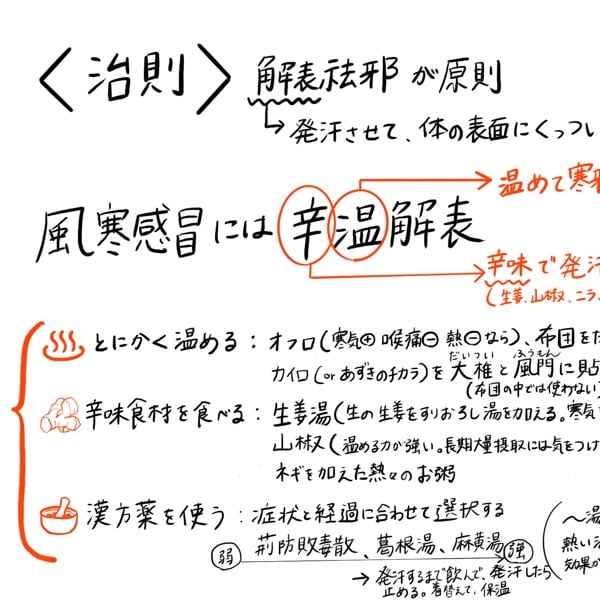 〈治則〉 解表祛邪が原則
→発汗させて、体の表面にくっつい
→温めて寒
風寒感冒には辛温解表
→辛味で発汗
(生姜、山椒、ニラ、
とにかく温める：オフロ(寒気⊕ 喉痛⊖ 熱⊖なら)、布団を
だいつい ふうもん
カイロ(orあずきのチカラ)を大椎と風門に貼
(布団の中では使わない)
辛味食材を食べる：生姜湯(生の生姜をすりおろし湯を加える。寒気
山椒(温める力が強い。長期大量摂取には気をつけ
ネギを加えた熱々のお粥
漢方薬を使う：症状と経過に合わせて選択する
弱 荊防敗毒散、葛根湯、麻黄湯 強
→発汗するまで飲んで、発汗したら
止める。着替えて、保温
(〜湯
熱い
効果が